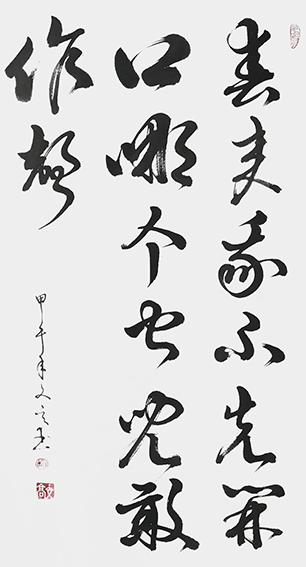 春来我不先开
口哪个虫儿敢
作声
甲午年文之书